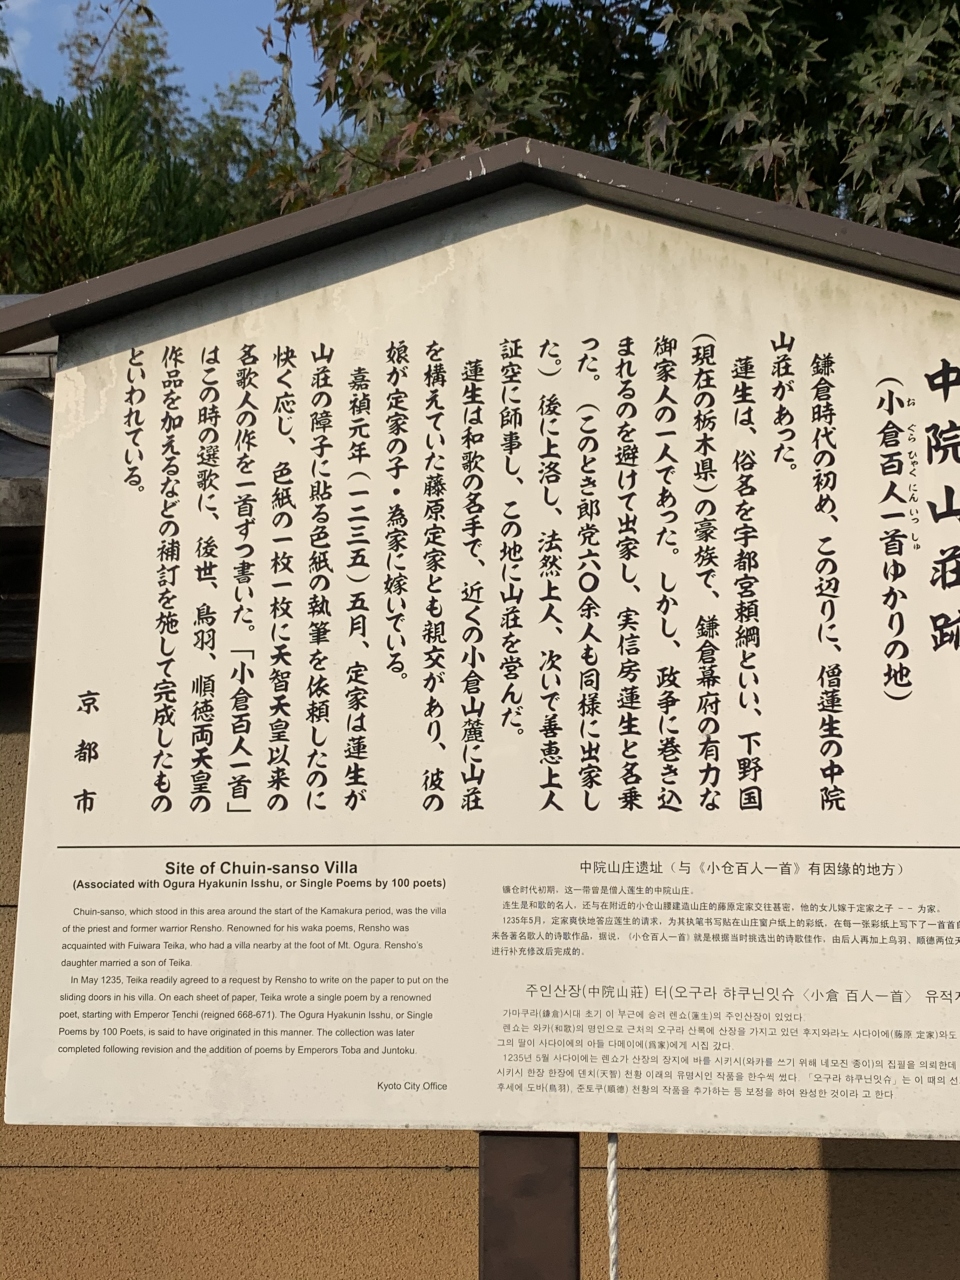 中院山荘跡
（小倉百人一首ゆかりの地）
お ぐら ひゃく にん いっ しゅ
鎌倉時代の初め、この辺りに、僧蓮生の中院
山荘があった。
蓮生は、俗名を宇都宮頼綱といい、下野国
（現在の栃木県）の豪族で、鎌倉幕府の有力な
御家人の一人であった。しかし、政争に巻き込
まれるのを避けて出家し、実信房蓮生と名乗
った。（このとき郎党六〇余人も同様に出家し
た。）後に上洛し、法然上人、次いで善恵上人
証空に師事し、この地に山荘を営んだ。
蓮生は和歌の名手で、近くの小倉山麓に山荘
を構えていた藤原定家とも親交があり、彼の
娘が定家の子・為家に嫁いでいる。
嘉禎元年（一二三五）五月、定家は蓮生が
山荘の障子に貼る色紙の執筆を依頼したのに
快く応じ、色紙の一枚一枚に天智天皇以来の
名歌人の作を一首ずつ書いた。「小倉百人一首」
はこの時の選歌に、後世、鳥羽、順徳両天皇の
作品を加えるなどの補訂を施して完成したもの
といわれている。
京都市
Site of Chuin-sanso Villa
(Associated with Ogura Hyakunin Isshu, or Single Poems by 100 poets)
Chuin-sanso, which stood in this area around the start of the Kamakura period, was the villa
of the priest and former warrior Rensho. Renowned for his waka poems, Rensho was
acquainted with Fuiwara Teika, who had a villa nearby at the foot of Mt. Ogura. Rensho's
daughter married a son of Teika.
In May 1235, Teika readily agreed to a request by Rensho to write on the paper to put on the
sliding doors in his villa. On each sheet of paper, Teika wrote a single poem by a renowned
poet, starting with Emperor Tenchi (reigned 668-671). The Ogura Hyakunin Isshu, or Single
Poems by 100 Poets, is said to have originated in this manner. The collection was later
completed following revision and the addition of poems by Emperors Toba and Juntoku.
Kyoto City Office
中院山庄遗址（与《小仓百人一首》有因缘的地方）
镰仓时代初期，这一带曾是僧人莲生的中院山庄。
连生是和歌的名人，还与在附近的小仓山腰建造山庄的藤原定家交往甚密，他的女儿嫁于定家之子 －－ 为家。
1235年5月，定家爽快地答应莲生的请求，为其执笔书写贴在山庄窗户纸上的彩纸，在每一张彩纸上写下了一首首自
来各著名歌人的诗歌作品，据说，《小仓百人一首》就是根据当时挑选出的诗歌佳作，由后人再加上鸟羽、顺德两位天
进行补充修改后完成的。
주인산장(中院山莊) 터(오구라 햐쿠닌잇슈〈小倉 百人一首〉 유적지
가마쿠라(鎌倉)시대 초기 이 부근에 승려 렌쇼(蓮生)의 주인산장이 있었다.
렌쇼는 와카(和歌)의 명인으로 근처의 오구라 산록에 산장을 가지고 있던 후지와라노 사다이에(藤原 定家)와도
그의 딸이 사다이에의 아들 다메이에(爲家)에게 시집 갔다.
1235년 5월 사다이에는 렌쇼가 산장의 장지에 바를 시키시(와카를 쓰기 위해 네모진 종이)의 집필을 의뢰한데
시키시 한장 한장에 덴치(天智) 천황 이래의 유명시인 작품을 한수씩 썼다. 「오구라 햐쿠닌잇슈」는 이 때의 선
후세에 도바(鳥羽), 준토쿠(順德) 천황의 작품을 추가하는 등 보정을 하여 완성한 것이라 고 한다